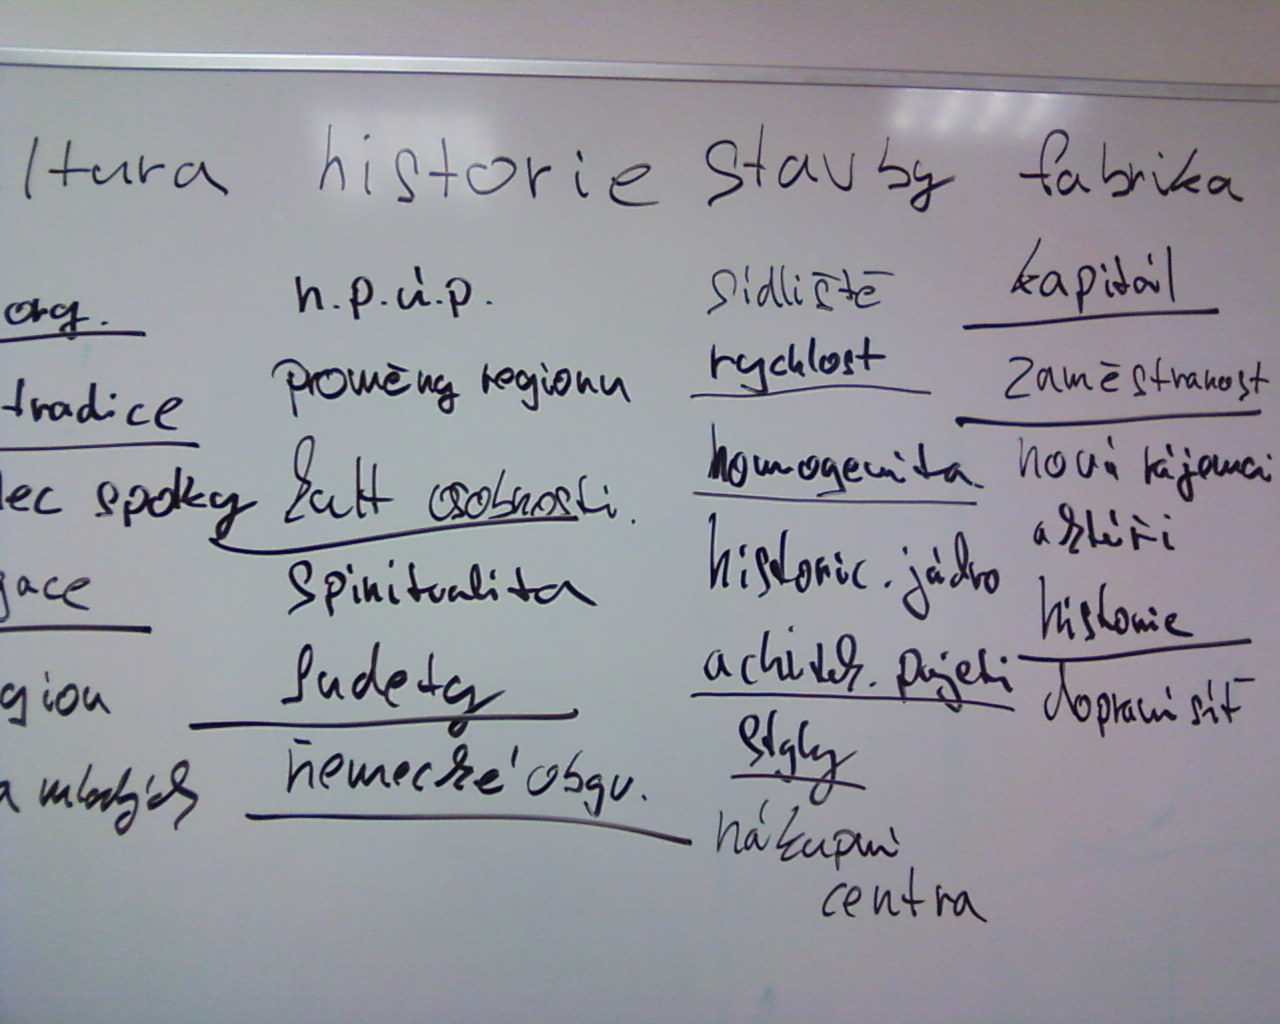 ltura historie stavby fabrika
org.
tradice
lec spolky
gace
gion
a mladých
n.p.ú.p.
proměny regionu
kult osobnosti.
spiritualita
Sudety
německé obyv.
sídliště
rychlost
homogenita
historic. jádro
achitek. pojetí
styly
nákupní
centra
kapitál
zaměstranost
noví nájemci
a
historie
dopravní síť